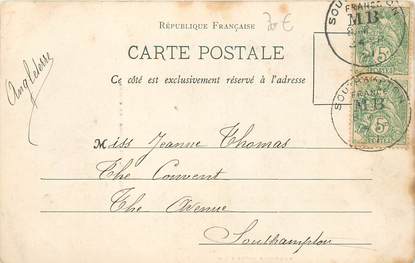 RÉPUBLIQUE FRANÇAISE
20 €
CARTE POSTALE
Ce côté est exclusivement réservé à l'adresse
Angleterre
SOUTHAMPTON
FRANCE
MB
5
SOUTHAMPTON
FRANCE
MB
5
Miss Jeanne Thomas
The Convent
The Avenue
Southampton